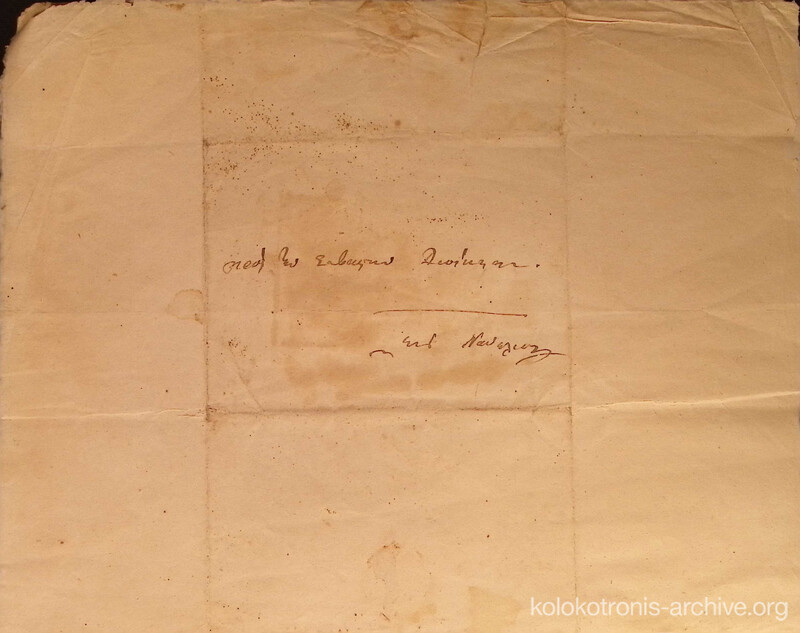 προς την σεβαστην Διοίκησιν.
εις Ναύπλιον
kolokotronis-archive.org